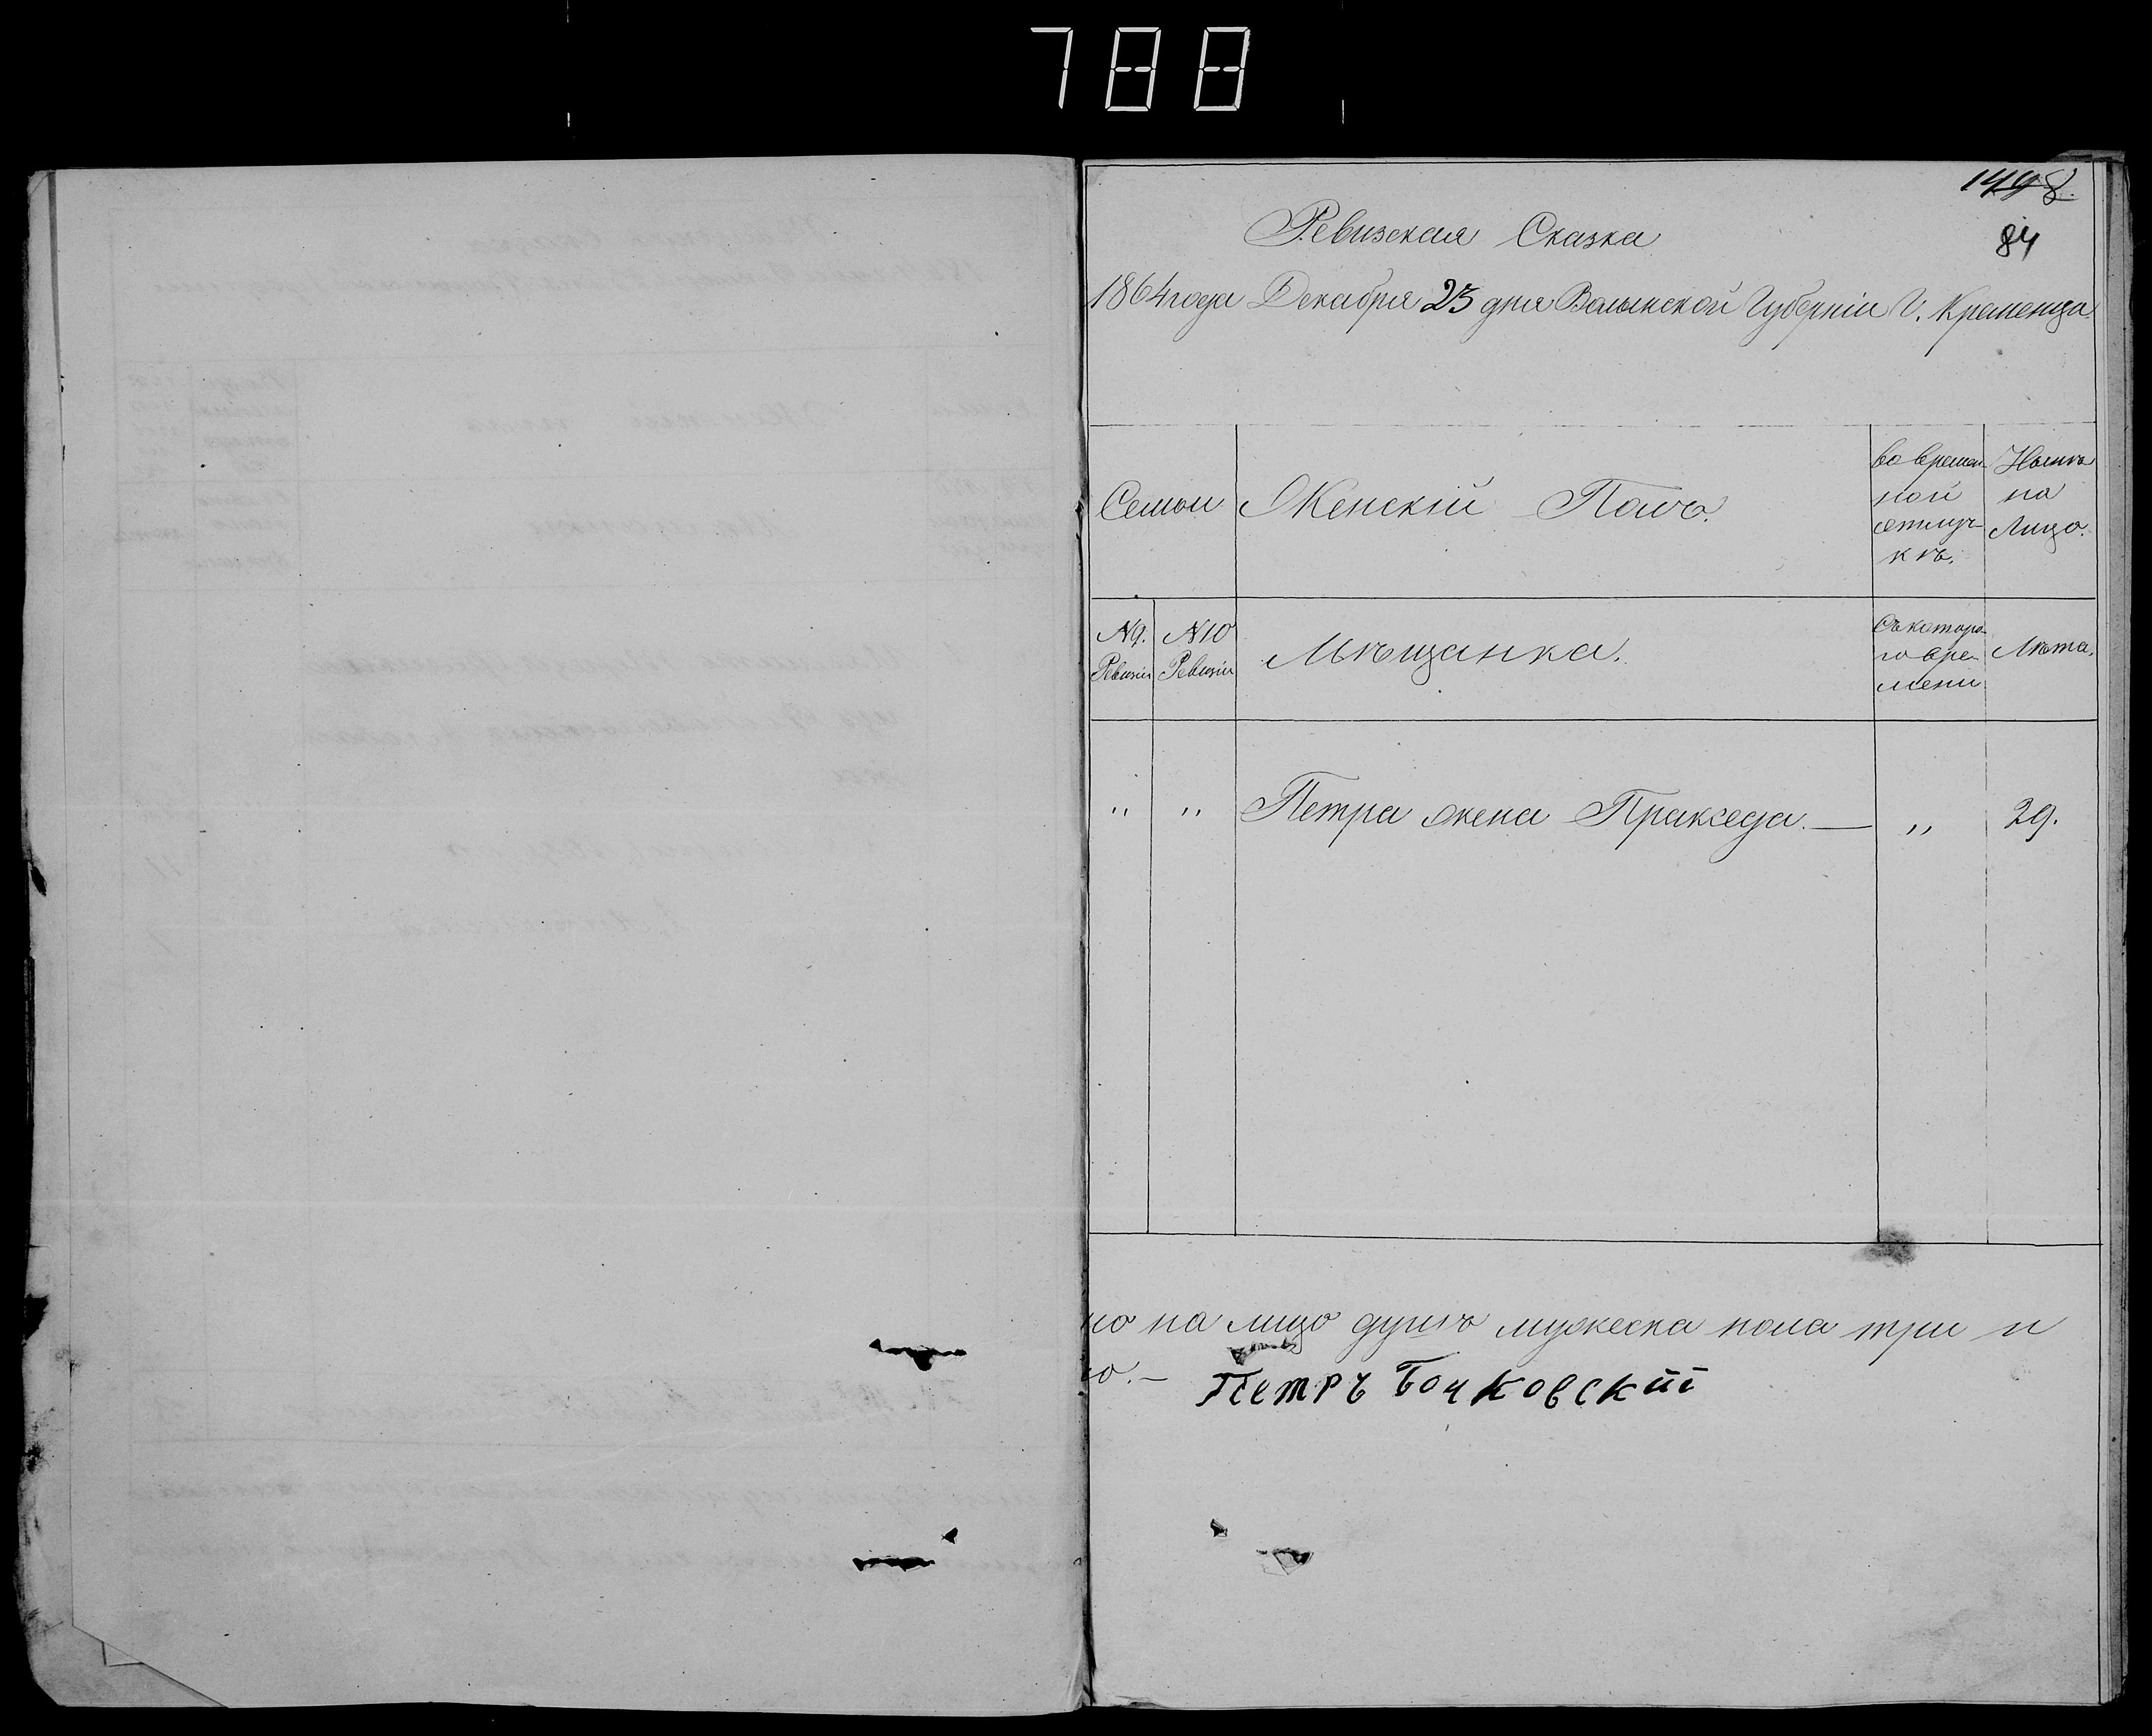 788
1498
84
Ревизская Сказка
1864 года Декабря 23 дня Волынской Губерніи Г. Кременца
Семьи
Женскій Полъ.
во времен-
ной
отлуч-
кѣ.
Нынѣ
на
Лицо.
№ 9.
Ревизіи
№ 10
Ревизіи
Мѣщанка.
Съ которо-
го вре-
мени
Лѣта.
" " Петра жена Пракседа. — " 29.
но на лицо душъ мужеска пола три и
о. —
Петръ Бочковскій